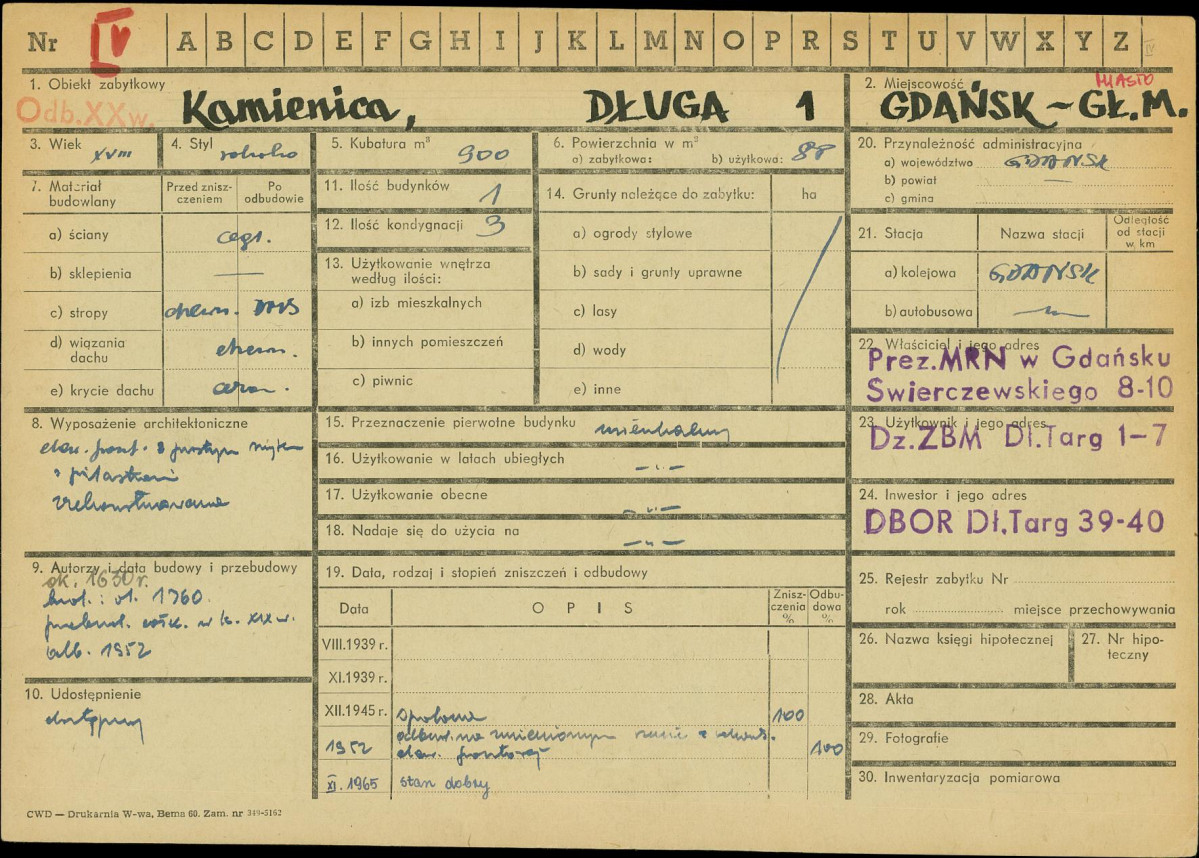 Nr IV A B C D E F G H I J K L M N O P R S T U V W X Y Z IV
1. Obiekt zabytkowy
Odb.XXw. Kamienica, DŁUGA 1
2. Miejscowość MIASTO
GDAŃSK - GŁ.M.
3. Wiek XVIII
4. Styl rokoko
5. Kubatura m³ 900
6. Powierzchnia w m²
a) zabytkowa: b) użytkowa: 88
20. Przynależność administracyjna
a) województwo GDAŃSK
b) powiat —
c) gmina
7. Materiał budowlany
Przed znisz-czeniem
Po odbudowie
a) ściany cegł.
b) sklepienia —
c) stropy drewn. DMS
d) wiązania dachu drewn.
e) krycie dachu
11. Ilość budynków 1
12. Ilość kondygnacji 3
13. Użytkowanie wnętrza według ilości:
a) izb mieszkalnych
b) innych pomieszczeń
c) piwnic
14. Grunty należące do zabytku: ha
a) ogrody stylowe
b) sady i grunty uprawne
c) lasy
d) wody
e) inne
21. Stacja
Nazwa stacji
Odległość od stacji w km
a) kolejowa GDAŃSK
b) autobusowa
22. Właściciel i jego adres
Prez.MRN w Gdańsku
Swierczewskiego 8-10
8. Wyposażenie architektoniczne
elew. front. z
z pilastrami
zrekonstruowana
15. Przeznaczenie pierwotne budynku mieszkalny
16. Użytkowanie w latach ubiegłych -„-
17. Użytkowanie obecne -„-
18. Nadaje się do użycia na -„-
23. Użytkownik i jego adres
Dz.ZBM Dł.Targ 1-7
24. Inwestor i jego adres
DBOR Dł.Targ 39-40
9. Autorzy i data budowy i przebudowy
ok. 1630 r.
1760.
przebud. w k. XIX w.
odb. 1952
10. Udostępnienie
dostępny
19. Data, rodzaj i stopień zniszczeń i odbudowy
Data
OPIS
Znisz-czenia %
Odbu-dowa %
VIII.1939 r.
XI.1939 r.
XII.1945 r. spalona 100
1952 odbud. na zmienionym rzucie z
elew. frontowej 100
XI. 1965 stan dobry
25. Rejestr zabytku Nr
rok miejsce przechowywania
26. Nazwa księgi hipotecznej
27. Nr hipo-teczny
28. Akta
29. Fotografie
30. Inwentaryzacja pomiarowa
CWD — Drukarnia W-wa, Bema 60. Zam. nr 349-5162